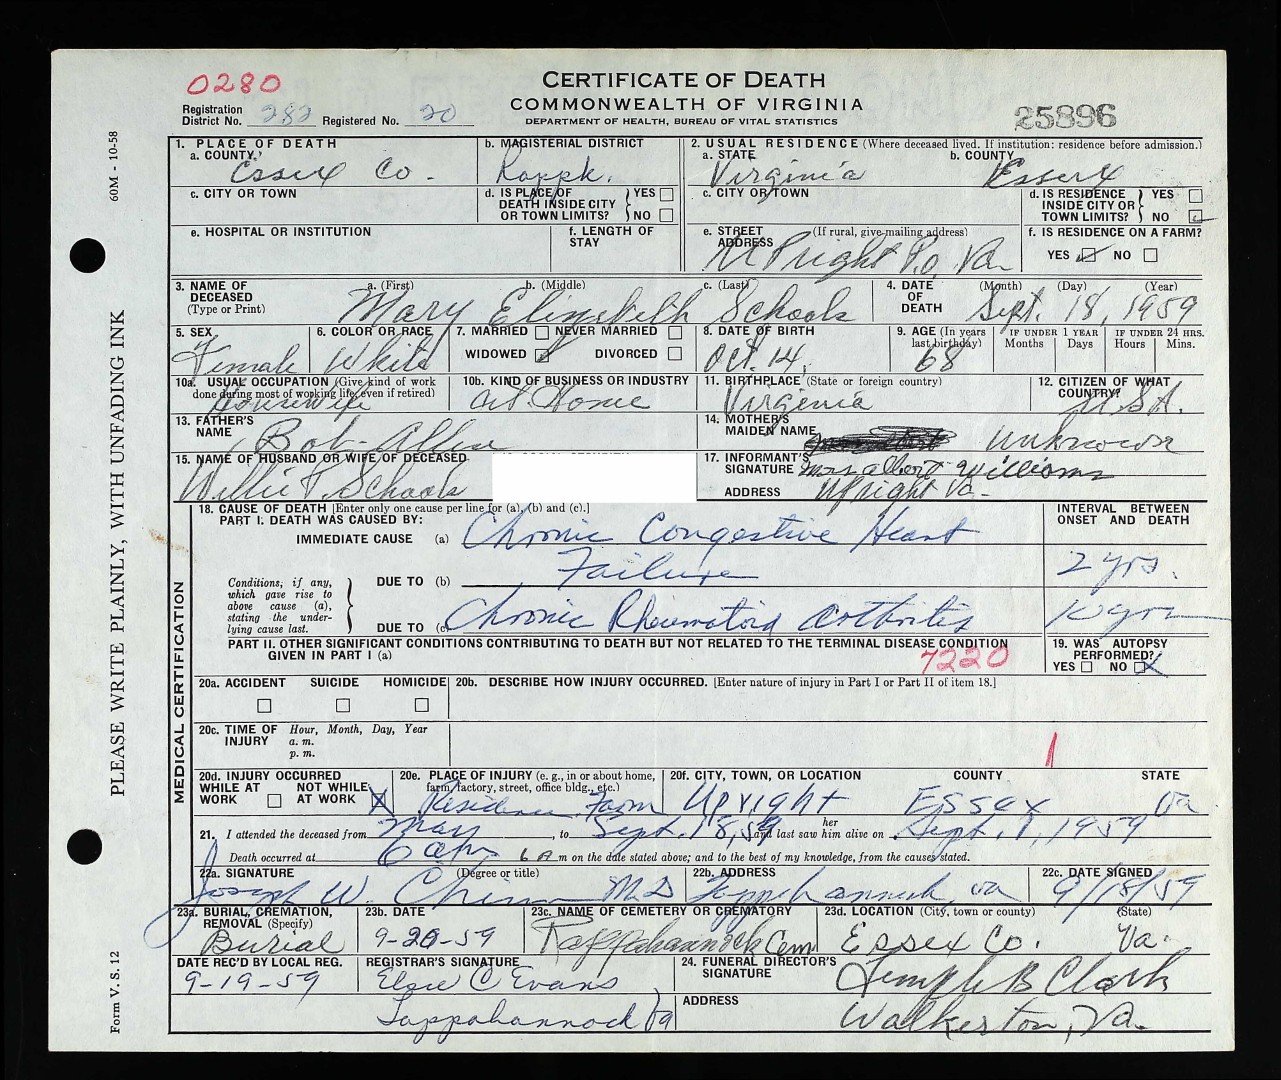 0280
CERTIFICATE OF DEATH
COMMONWEALTH OF VIRGINIA
DEPARTMENT OF HEALTH, BUREAU OF VITAL STATISTICS
25896
Registration District No. 282 Registered No. 20
60M - 10-58
PLEASE WRITE PLAINLY, WITH UNFADING INK
Form V. S. 12
1. PLACE OF DEATH
a. COUNTY Essex Co.
b. MAGISTERIAL DISTRICT Rappk.
2. USUAL RESIDENCE (Where deceased lived. If institution: residence before admission.)
a. STATE Virginia
b. COUNTY Essex
c. CITY OR TOWN
d. IS PLACE OF DEATH INSIDE CITY OR TOWN LIMITS? YES NO
c. CITY OR TOWN
d. IS RESIDENCE INSIDE CITY OR TOWN LIMITS? YES NO
e. HOSPITAL OR INSTITUTION
f. LENGTH OF STAY
e. STREET ADDRESS (If rural, give mailing address)
Upright P.O. Va.
f. IS RESIDENCE ON A FARM?
YES NO
3. NAME OF DECEASED (Type or Print)
a. (First) b. (Middle) c. (Last)
Mary Elizabeth Schools
4. DATE OF DEATH (Month) (Day) (Year)
Sept. 18, 1959
5. SEX Female
6. COLOR OR RACE White
7. MARRIED NEVER MARRIED
WIDOWED DIVORCED
8. DATE OF BIRTH Oct. 14,
9. AGE (In years last birthday) 68
IF UNDER 1 YEAR Months Days
IF UNDER 24 HRS. Hours Mins.
10a. USUAL OCCUPATION (Give kind of work done during most of working life, even if retired)
Housewife
10b. KIND OF BUSINESS OR INDUSTRY
At Home
11. BIRTHPLACE (State or foreign country)
Virginia
12. CITIZEN OF WHAT COUNTRY?
U.S.A.
13. FATHER'S NAME Bob Allen
14. MOTHER'S MAIDEN NAME Unknown
15. NAME OF HUSBAND OR WIFE OF DECEASED
Willie T. Schools
17. INFORMANT'S SIGNATURE Mrs Albert Williams
ADDRESS Upright Va.
MEDICAL CERTIFICATION
18. CAUSE OF DEATH [Enter only one cause per line for (a), (b) and (c).]
INTERVAL BETWEEN ONSET AND DEATH
PART I: DEATH WAS CAUSED BY:
IMMEDIATE CAUSE (a) Chronic Congestive Heart
Failure 2 yrs.
Conditions, if any, which gave rise to above cause (a), stating the underlying cause last.
DUE TO (b)
DUE TO (c) Chronic Rheumatoid Arthritis 10 yrs
PART II. OTHER SIGNIFICANT CONDITIONS CONTRIBUTING TO DEATH BUT NOT RELATED TO THE TERMINAL DISEASE CONDITION GIVEN IN PART I (a)
7220
19. WAS AUTOPSY PERFORMED?
YES NO X
20a. ACCIDENT SUICIDE HOMICIDE
20b. DESCRIBE HOW INJURY OCCURRED. [Enter nature of injury in Part I or Part II of item 18.]
20c. TIME OF INJURY Hour, Month, Day, Year
a. m.
p. m.
1
20d. INJURY OCCURRED
WHILE AT WORK NOT WHILE AT WORK X
20e. PLACE OF INJURY (e. g., in or about home, farm, factory, street, office bldg., etc.)
Residence Farm
20f. CITY, TOWN, OR LOCATION COUNTY STATE
Upright Essex Va.
21. I attended the deceased from May, to Sept. 18, 59 and last saw him her alive on Sept. 1, 1959
Death occurred at 6 am 6 A m on the date stated above; and to the best of my knowledge, from the causes stated.
22a. SIGNATURE (Degree or title)
Joseph W. Chinn M.D.
22b. ADDRESS
Tappahannock, Va
22c. DATE SIGNED
9/18/59
23a. BURIAL, CREMATION, REMOVAL (Specify)
Burial
23b. DATE
9-20-59
23c. NAME OF CEMETERY OR CREMATORY
Rappahannock Cem
23d. LOCATION (City, town or county) (State)
Essex Co. Va.
DATE REC'D BY LOCAL REG.
9-19-59
REGISTRAR'S SIGNATURE
Elsie C Evans
Tappahannock Va
24. FUNERAL DIRECTOR'S SIGNATURE
B Clark
ADDRESS
Walkerton, Va.